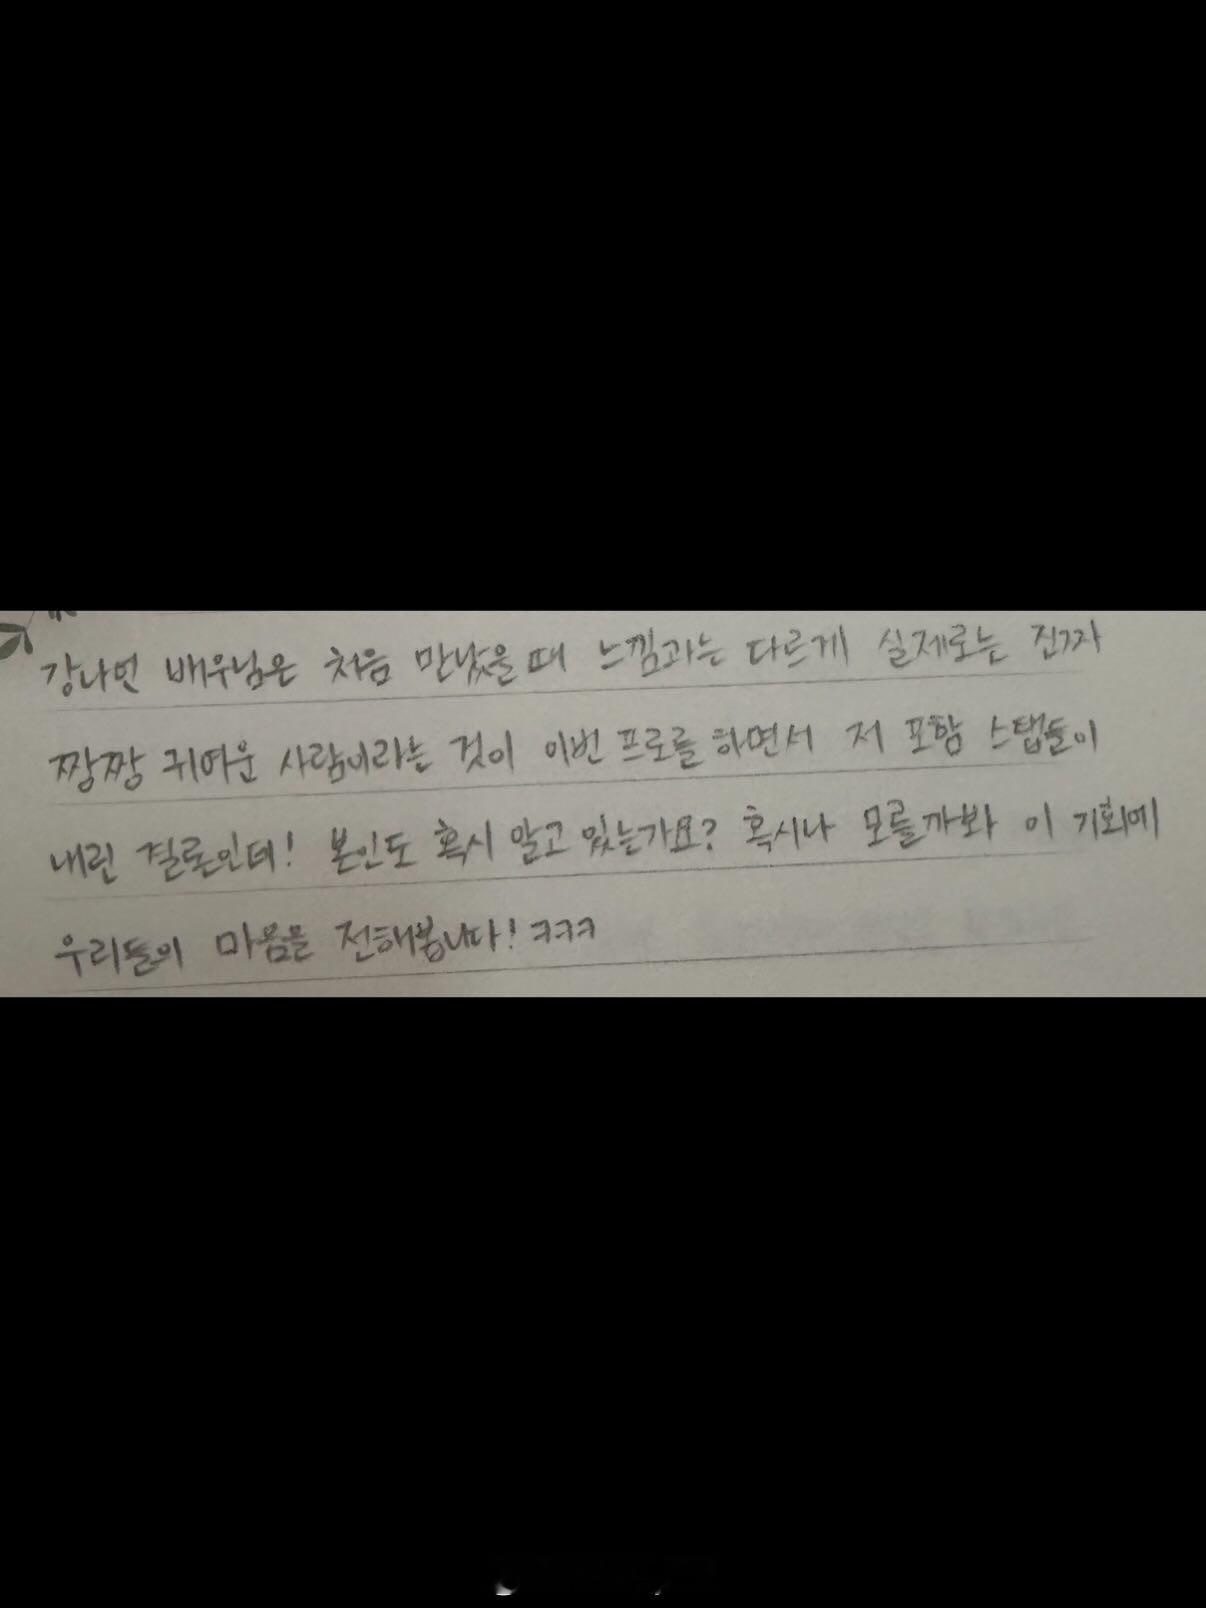 강나언 배우님은 처음 만났을 때 느낌과는 다르게 실제로는 진짜
짱짱 귀여운 사람이라는 것이 이번 프로를 하면서 저 포함 스탭들이
내린 결론인데! 본인도 혹시 알고 있는가요? 혹시나 모를까봐 이 기회에
우리들의 마음을 전해봅니다! ㅋㅋㅋ